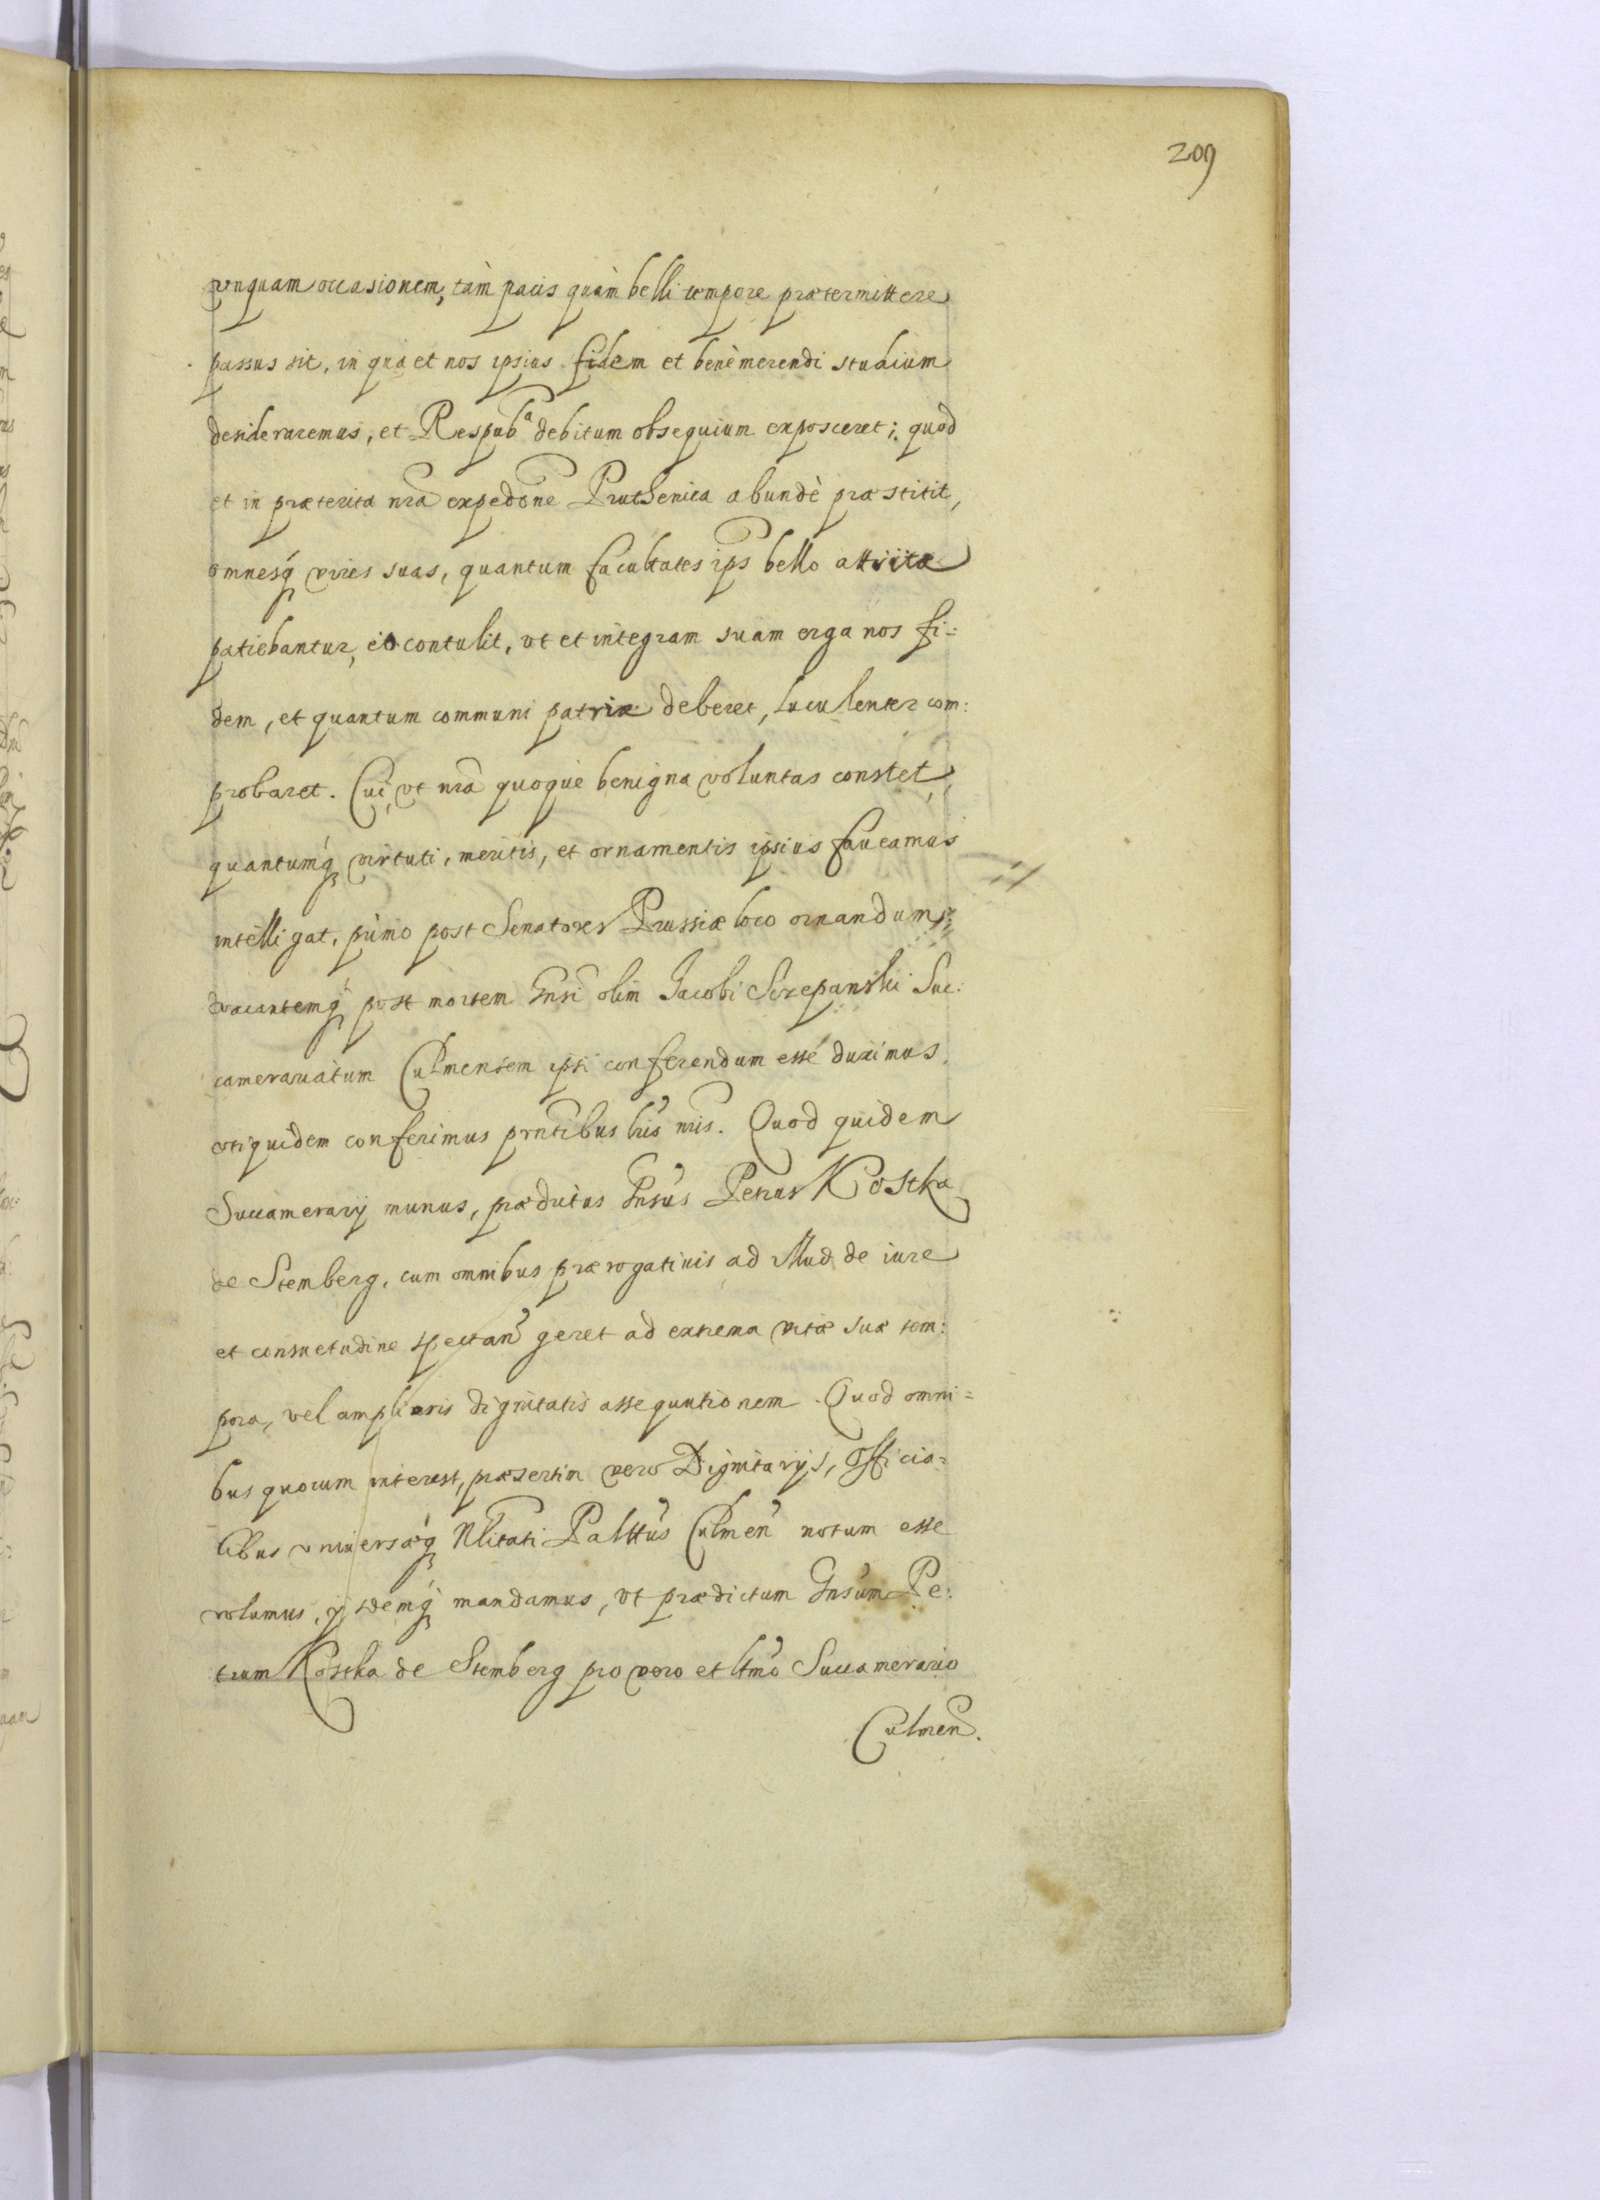 209
vnquam occasionem, tàm pacis quàm belli tempore prætermittere
passus sit, in qua et nos ipsius fidem et benè merendi studium
desideraremus, et Respub^a debitum obsequium exposceret; quod
et in præterita nrã expedõne Pruthenica abundè præstitit,
omnesq́ vires suas, quantum facultates ips̃ bello attritæ
patiebantur, eò contulit, vt et integram suam erga nos fi=
dem, et quantum communi patriæ deberet, luculenter com:
probaret. Cui, vt nrã quoque benigna voluntas constet,
quantumq́ virtuti, meritis, et ornamentis ipsius faueamus
intelligat, primo post Senatores Prussiæ loco ornandum,
vacantemq́ post mortem Gnsi olim Jacobi Sczepanski Suc:
camerariatum Culmensem ipsi conferendum esse duximus,
vti quidem conferimus prñtibus lris nris. Quod quidem
Succamerarij munus, prædictus Gnsus Petrus Kostka
de Stemberg, cum omnibus prærogatiuis ad illud de iure
et consuetudine spectan̉ geret ad extrema vitæ suæ tem:
pora, vel amplioris dignitatis assequutionem. Quod omni=
bus quorum interest, præsertim vero Dignitarijs, Officia=
libus vniuersæq́ Nlitati Palttus Culmen̉ notum esse
volumus, ijsdemq́ mandamus, vt prædictum Gnsum Pe:
trum Kostka de Stemberg pro vero et ltmo Succamerario
Culmen̉.